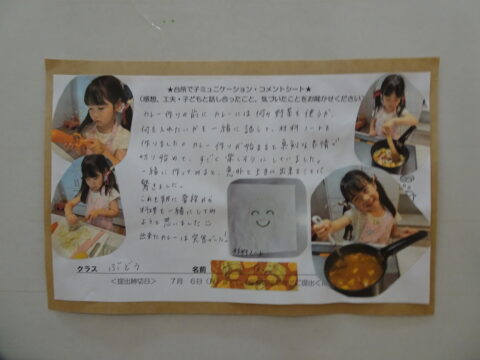 ★台所で子ミュニケーション・コメントシート★
(感想、工夫・子どもと話し合ったこと、気づいたことをお聞かせください)
カレー作りの前に カレーには何の野菜を使うか、
何を入れたいかを一緒に話して、材料ノートを
作りました。カレー作りが始まると真剣な表情で
切り始めて、すごく楽しそうにしていました。
一緒に作ってみると、意外と上手に出来ることに
驚きました。
これを期に普段から
料理を一緒にしてみ
ようと思いました
出来たカレーは完食でした!
材料ノート
クラス ぶどう 名前
<提出締切日> 7月 6日